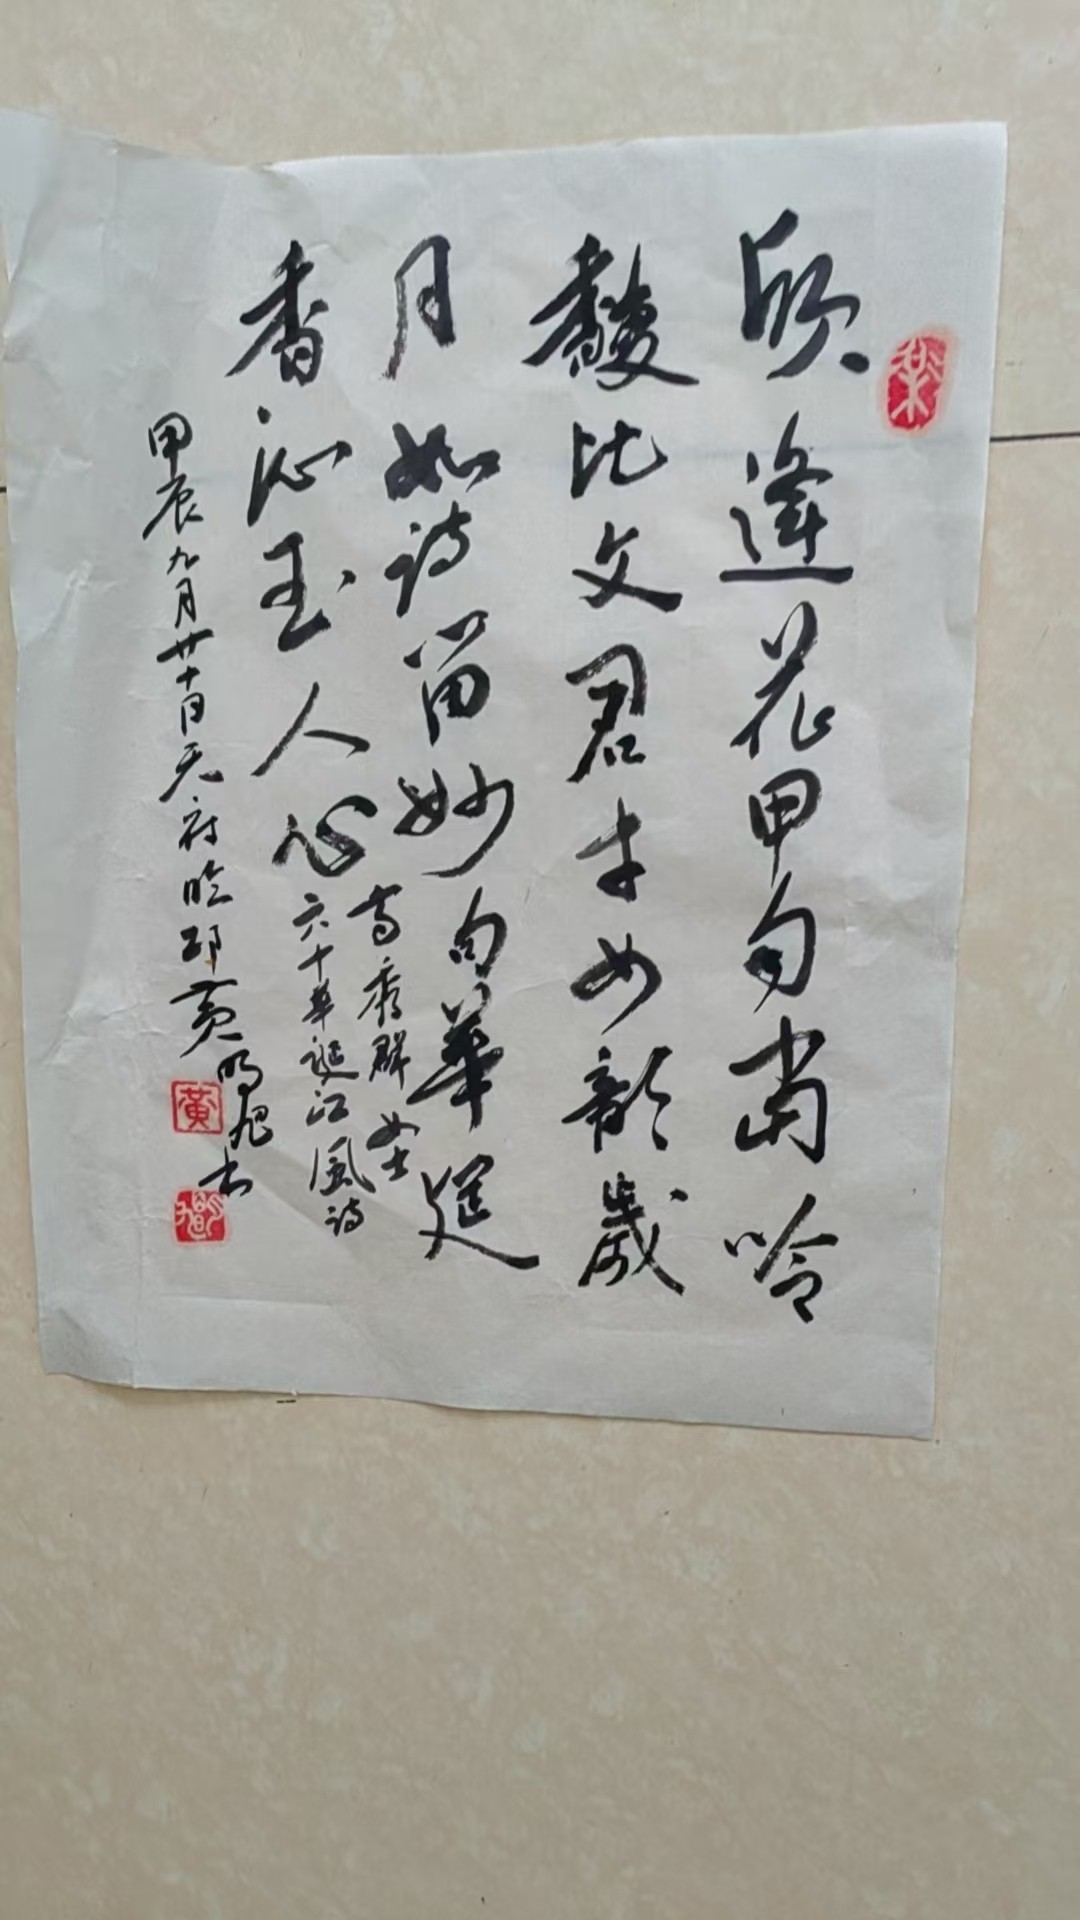 欣逢花甲勾當吟
馥比文君才女韻歲
月如詩留妙句華筵
香沁玉人心
高秀群女士
六十華誕江風詩
甲辰九月廿十日天府臨邛黃明旭書
黃